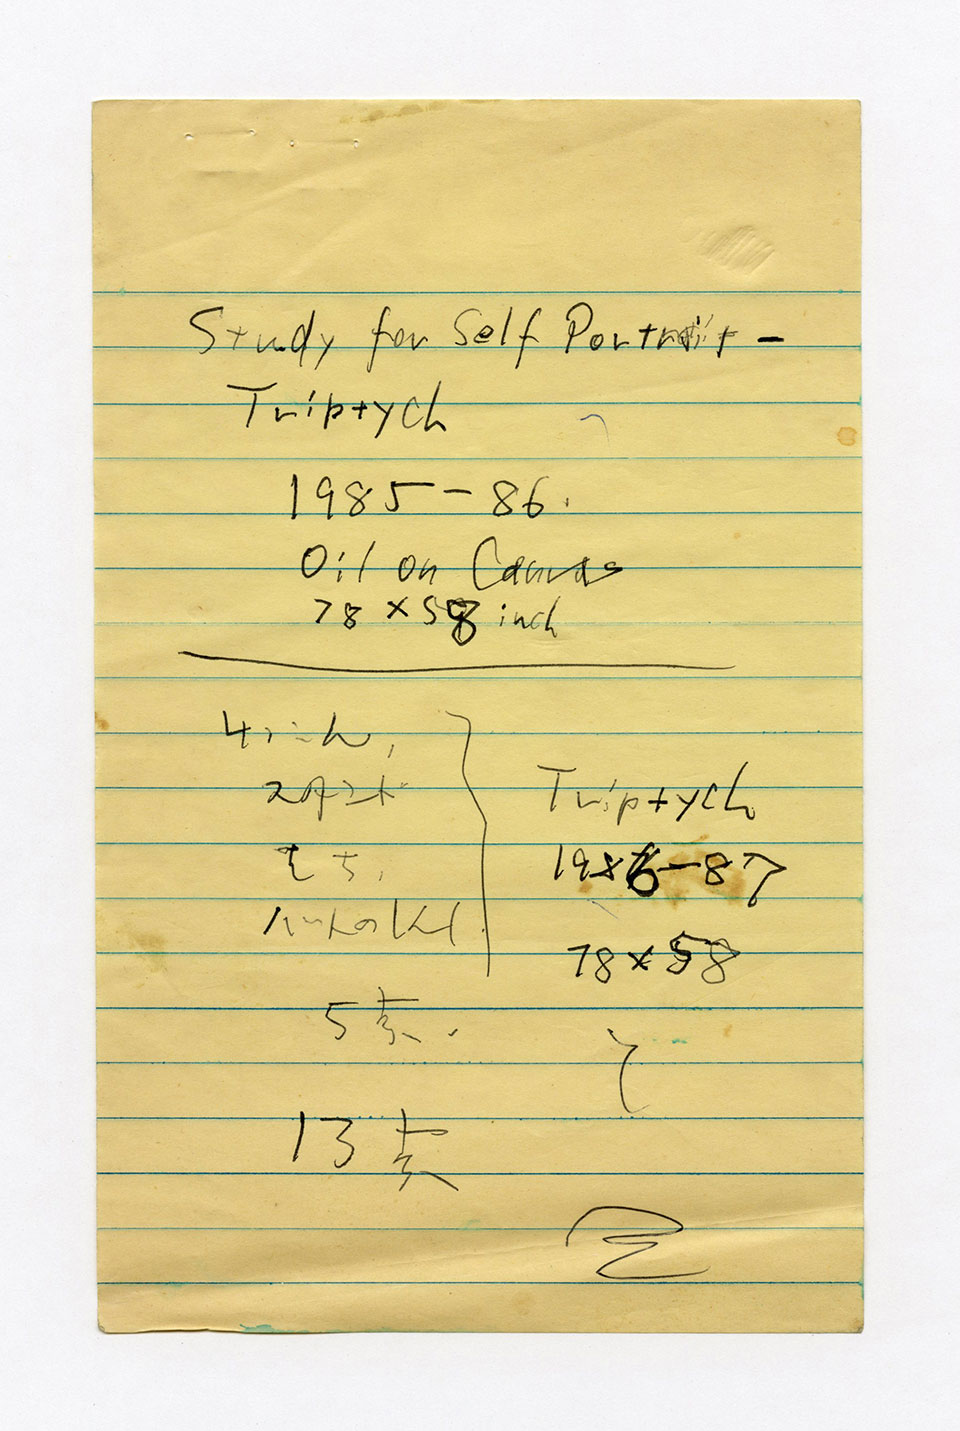 Study for Self Portrait -
Triptych
1985-86.
Oil on Canvas
78 × 58 inch
スタンド
もち、
5点.
13点
Triptych
1986-87
78×58
と